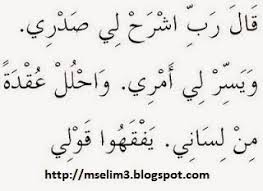 قَالَ رَبِّ اشْرَحْ لِي صَدْرِي.
وَيَسِّرْ لِي أَمْرِي. وَاحْلُلْ عُقْدَةً
مِنْ لِسَانِي. يَفْقَهُوا قَوْلِي
http://mselim3.blogspot.com